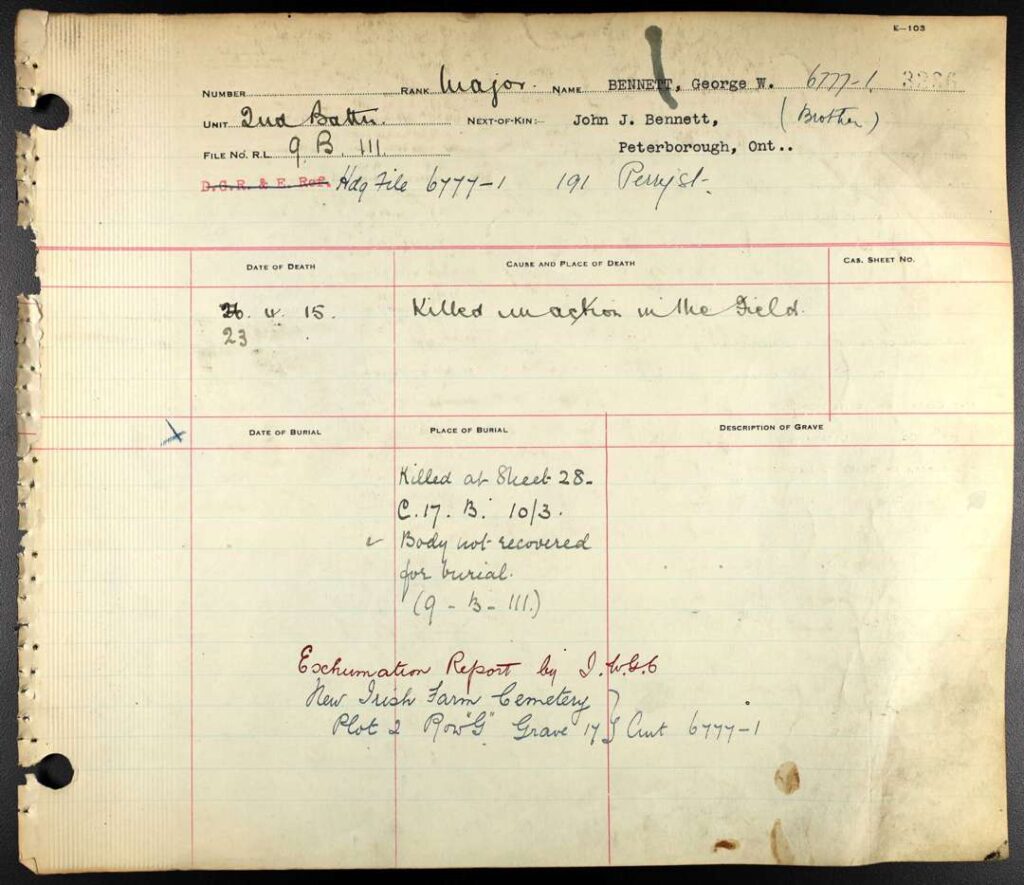 E—103
NUMBER RANK Major. NAME BENNETT, George W. 6777-1. 3226
UNIT 2nd Battn. NEXT-OF-KIN:- John J. Bennett, (Brother)
FILE NO. R.L. 9 B. 111. Peterborough, Ont..
D.G.R. & E. Ref. Hdq File 6777-1 191 Perry St.
DATE OF DEATH CAUSE AND PLACE OF DEATH CAS. SHEET NO.
26. 4. 15. Killed in action in the Field.
23
x DATE OF BURIAL PLACE OF BURIAL DESCRIPTION OF GRAVE
Killed at Sheet 28-
C.17. B. 10/3.
Body not recovered
for burial.
(9 - B - 111.)
Exhumation Report by I.W.G.C
New Irish Farm Cemetery
Plot 2 Row "G" Grave 17 } Aut 6777-1